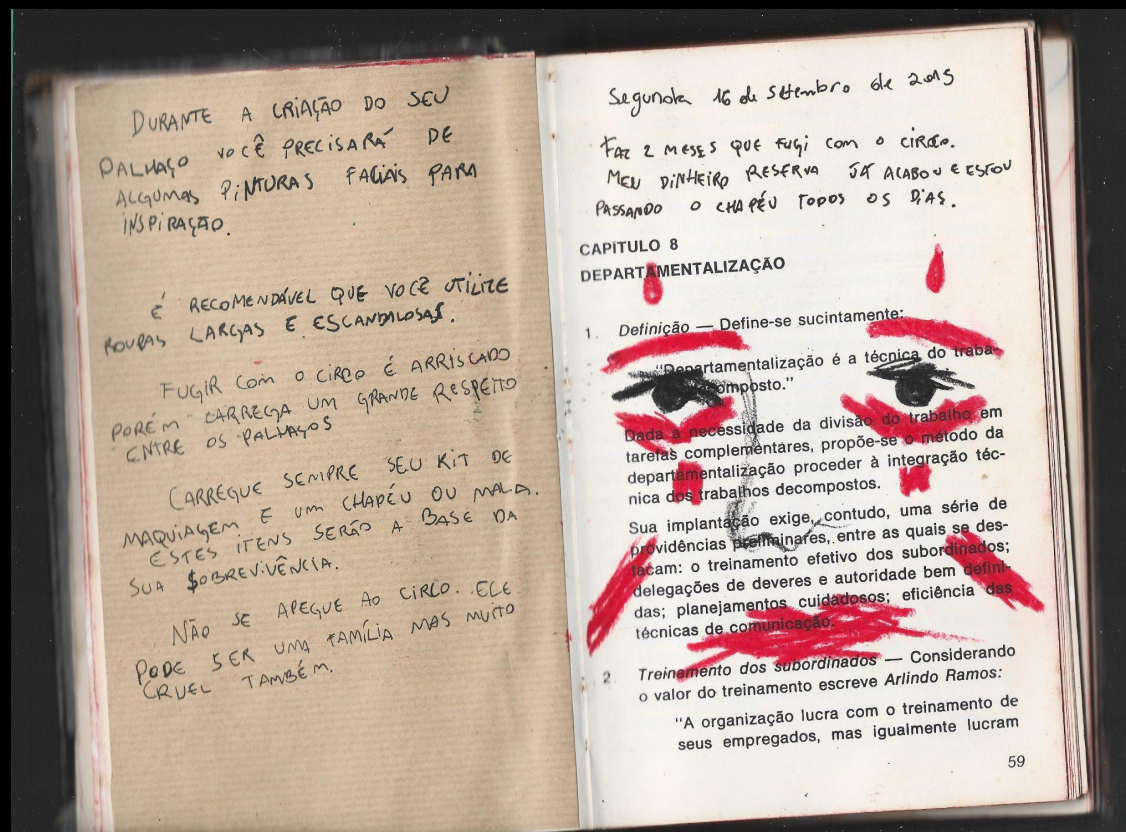 DURANTE A CRIAÇÃO DO SEU
PALHAÇO VOCÊ PRECISARÁ DE
ALGUMAS PINTURAS FACIAIS PARA
INSPIRAÇÃO.
É RECOMENDÁVEL QUE VOCÊ UTILIZE
ROUPAS LARGAS E ESCANDALOSAS.
FUGIR COM O CIRCO É ARRISCADO
PORÉM CARREGA UM GRANDE RESPEITO
ENTRE OS PALHAÇOS
CARREGUE SEMPRE SEU KIT DE
MAQUIAGEM E UM CHAPÉU OU MALA.
ESTES ITENS SERÃO A BASE DA
SUA $OBREVIVÊNCIA.
NÃO SE APEGUE AO CIRCO. ELE
PODE SER UMA FAMÍLIA MAS MUITO
CRUEL TAMBÉM.
Segunda 16 de Setembro de 2019
FAZ 2 MESES QUE FUGI COM O CIRCO.
MEU DINHEIRO RESERVA JÁ ACABOU E ESTOU
PASSANDO O CHAPÉU TODOS OS DIAS.
CAPITULO 8
DEPARTAMENTALIZAÇÃO
1. Definição — Define-se sucintamente:
"Departamentalização é a técnica do traba-
composto."
Dada a necessidade da divisão do trabalho em
tarefas complementares, propõe-se o método da
departamentalização proceder à integração téc-
nica dos trabalhos decompostos.
Sua implantação exige, contudo, uma série de
providências preliminares, entre as quais se des-
tacam: o treinamento efetivo dos subordinados;
delegações de deveres e autoridade bem defini-
das; planejamentos cuidadosos; eficiência das
técnicas de comunicação.
2 Treinamento dos subordinados — Considerando
o valor do treinamento escreve Arlindo Ramos:
"A organização lucra com o treinamento de
seus empregados, mas igualmente lucram
59